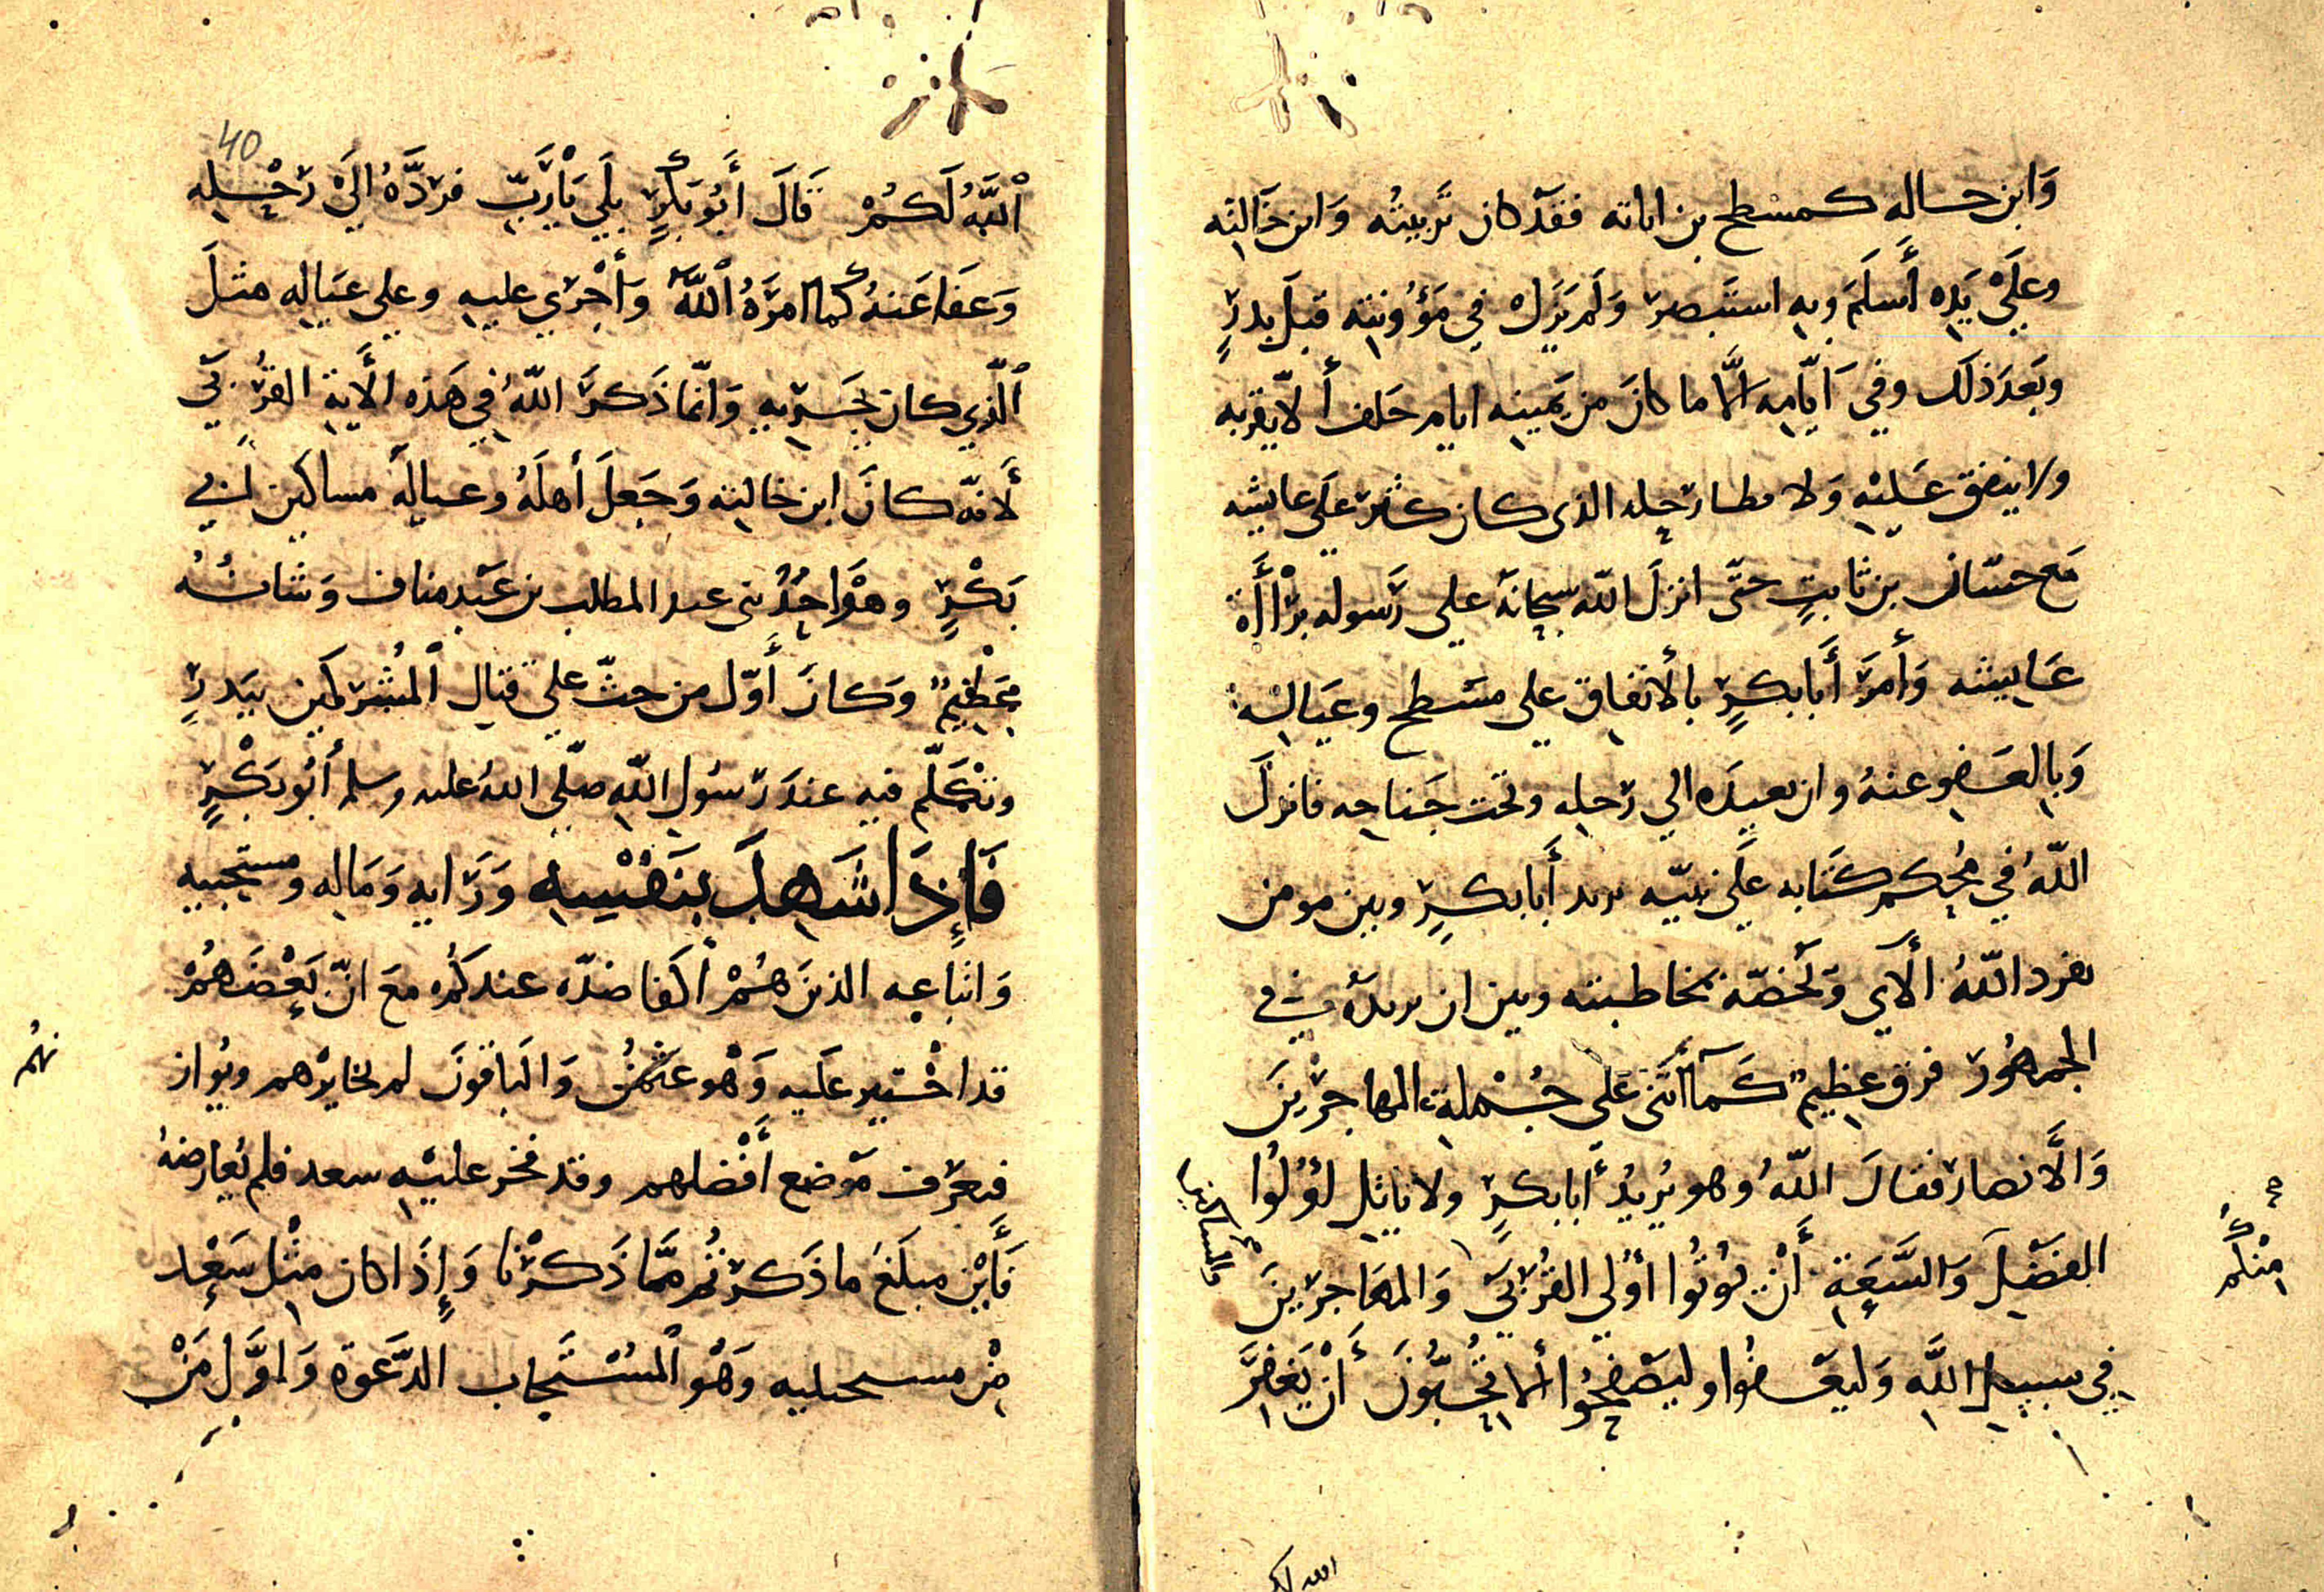 وَابن حساله كمسطح بن اثاثه فقد كان تربيتُه وَابن خَالتِه
وعلَي يَدِه أَسلَمَ وبِه استَبصر وَلَم يَزَل في مَؤُونتِه قبلَ بدرٍ
وبَعدَ ذلك وفي اَيّامِه الَّا ما كانَ من يَمينِه ايام حَلف ألّا يقربه
ولا ينفق عَليْهِ وَلا مطا رحله الذى كان كثر علَي عايشه
مَع حسّان بن ثابتٍ حتّى انزلَ اللّه سبحانهَ علي رَسوله برْاأَة
عَايشه وَأمرَ أَبابكرٍ بالأنفاق علي مسَطح وعيَالِه
وَبالعَفو عنهُ وان يعيدَه الي رَحلِه وتحت جَناحِه فانزلَ
اللّهُ في مُحكم كتَابه علَي نبيّه يريد أَبابكرٍ وبين مومن
يفرد اللّهُ ألآي وَتخصّه بمخاطبته وبين ان يريدَهُ في
الجمهُور فرق عظيم كَمآ أثنَى علَى جُمْلةِ المهاجرْينَ
وَالَّانصار فقالَ اللّهُ وهو يُريدُ أَبابكرٍ ولا ياتلِ اؤلُوا
الفَضلِ منكُم وَالسَّعَةِ أَنْ يُوتُوا أوُلي القُربَي وَالمسَاكين وَالمهَاجرينَ
في سبيلِ اللَّهِ وَليَعفُوا وليَصفحُوا ألا تحُبّونَ أَنْ يَغفِرَ
الله لكم
40
ٱللَّهُ لَكُمْ قَالَ أَبُو بَكرٍ بلَي يَارَبّ فردَّهُ الَيْ رَحْلِهِ
وَعَفا عَنهُ كما امرَهُ ٱللَّهُ وَأجْري عليهِ وعلي عيَالهِ مثلَ
ٱلّذي كان يجَريهِ وَانّما ذَكرَ اللّهُ في هَذه الأَيةِ القُربَي
لَأنّه كانَ ابن خالتِه وَجَعلَ أهلَهُ وعيالَه مساكين أبي
بَكْرٍ وهْوَ احَدُ بني عبد المطلب بن عَبْد مناف وَشانُهُ
عَظيم وَكانَ أَوّل من حثّ علي قتال ٱلمُشركين ببَدرٍ
وتَكلّم فيه عندَ رَسُول اللّه صلّى اللهُ عليه وسلم أَبُو بَكْرٍ
فَإِذَا شَهدَ بنَفْسِهِ وَرَايهِ وَمَالِه ومستجيبيه
وَاتباعِه الذينَ هُمْ أكفا ضدّه عندكُم مَعَ انّ بَعْضَهُمْ
قد اخْتير علَيه وَهْو عثمنُ وَالبَاقونَ لم يخايرْهم ويُوازنهُم
فتعَرّف مَوضع أَفْضلهم وقد فخر عليْهِ سعد فلم يُعارضهُ
فَأَيْن مبلَغَ ما ذَكرتُم مّما ذَكرْنا وَإِذَا كان مثْل سَعْد
من مستجيبيه وَهْو ٱلمسُتَجاب الدَّعوة وَاوَّل مَنْ